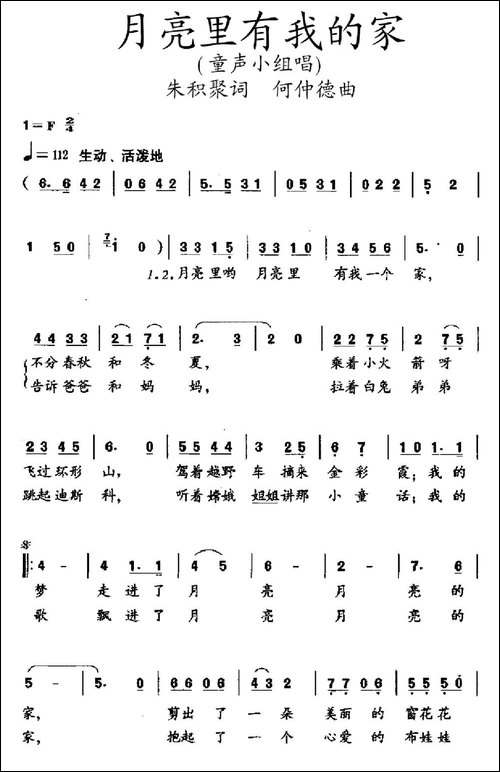 月亮里有我的家
(童声小组唱)
朱积聚词 何仲德曲
1=F 2/4
♩=112 生动、活泼地
( 6. 6 4 2 | 0 6 4 2 | 5. 5 3 1 | 0 5 3 1 | 0 2 2 | 5 2 |
1 5 0 | 7 i 0 ) | 3 3 1 5 | 3 3 1 0 | 3 4 5 6 | 5. 0 |
1.2.月亮里哟 月亮里 有我一个 家,
4 4 3 3 | 2 1 7 1 | 2. 3 | 2 0 | 2 2 7 5 | 2 7 5 |
不分春秋 和冬 夏, 乘着小火 箭呀
告诉爸爸 和妈 妈, 拉着白兔 弟弟
2 3 4 5 | 6. 0 | 5 5 4 4 | 3 2 5 | 6 7 | 1 0 1. 1 |
飞过环形 山, 驾着越野 车摘来 金彩 霞;我的
跳起迪斯 科, 听着嫦娥 姐姐讲那 小童 话;我的
𝄋
‖: 4 - | 4 1. 1 | 4 5 | 6 - | 2 - | 7. 6 |
梦 走进了 月 亮 月 亮的
歌 飘进了 月 亮 月 亮的
5 - | 5. 0 | 6 6 0 6 | 4 3 2 | 7 7 0 6 | 5 5 5 0 |
家, 剪出了 一朵 美丽的 窗花花
家, 抱起了 一个 心爱的 布娃娃